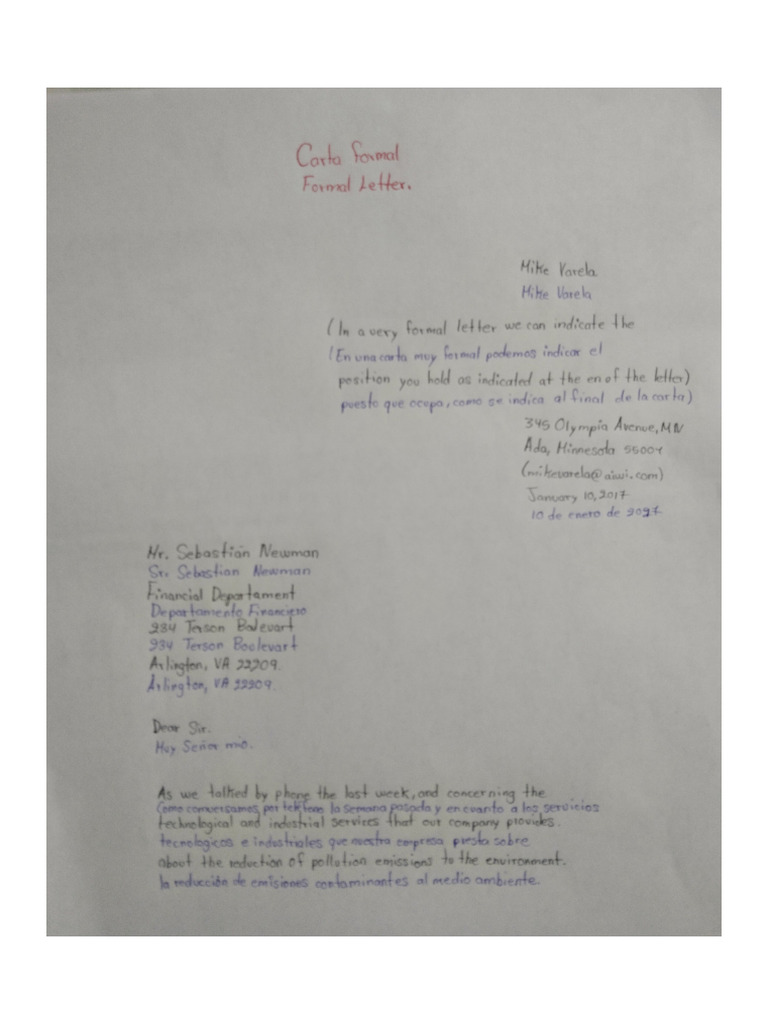 Carta formal
Formal Letter.
Mike Varela
Mike Varela
(In a very formal letter we can indicate the
(En una carta muy formal podemos indicar el
position you hold as indicated at the en of the letter)
puesto que ocupa, como se indica al final de la carta)
345 Olympia Avenue, MN
Ada, Minnesota 55001
(mikevarela@aiwi.com)
January 10, 2017
10 de enero de
Mr. Sebastián Newman
Sr. Sebastian Newman
Financial Departament
Departamento Financiero
234 Terson Bolevart
234 Terson Boolevart
Arlington, VA 22209.
Arlington, VA 22209.
Dear Sir.
Muy Señor mio.
As we talked by phone the last week, and concerning the
Como conversamos por teléfono la semana pasada y en cuanto a los servicios
technological and industrial services that our company provides.
tecnologicos e industriales que nuestra empresa presta sobre
about the reduction of pollution emissions to the environment.
la reducción de emisiones contaminantes al medio ambiente.